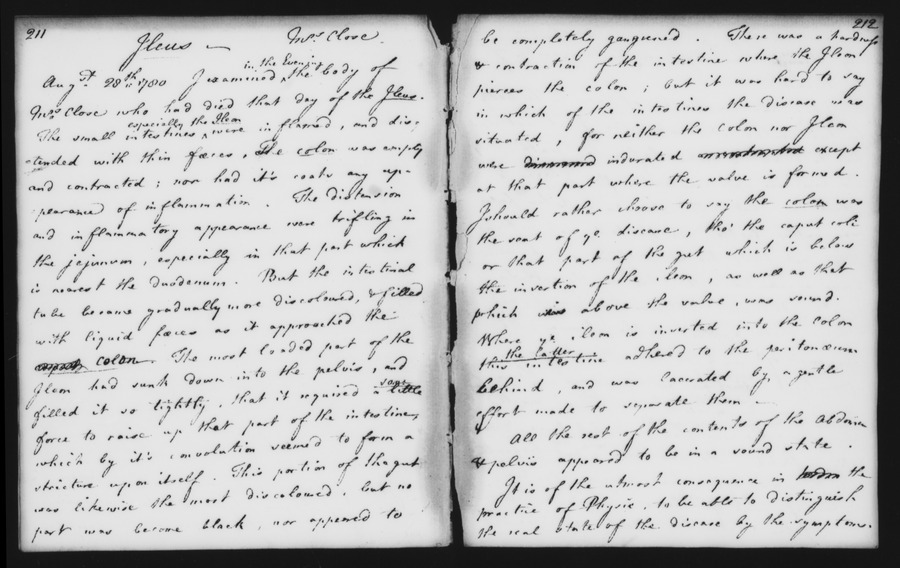 211
Ileus — Mrs Close.
in the Evening
Augst 28th 1780 I examined ^ the body of
Mrs Close who had died that day of the Ileus.
especially the Ilem
The small intestines ^ were inflamed, and dis-
-tended with thin fæces. The colon was empty
and contracted; nor had it's coats any ap-
-pearance of inflammation. The distension
and inflammatory appearance were trifling in
the jejunum, especially in that part which
is nearest the duodenum. But the intestinal
tube became gradually more discoloured, & filled
with liquid fæces as it approached the
colon. The most loaded part of the
Ilem had sunk down into the pelvis, and
filled it so tightly, that it required some
a little
force to raise up that part of the intestine,
which by it's convolution seemed to form a
stricture upon itself. This portion of the gut
was likewise the most discoloured, but no
part was become black, nor appeared to
212
be completely gangrened. There was a hardness
& contraction of the intestine where the Ilem
pierces the colon; but it was hard to say
in which of the intestines the disease was
situated, for neither the Colon nor Ilem
were indurated except
at that part where the valve is formed.
I should rather choose to say the colon was
the seat of ye disease, tho' the caput coli
or that part of the gut which is below
the insertion of the ilem, as well as that
which above the valve, was sound.
Where ye ilem is inserted into the Colon
the latter
this intestine adhered to the peritonæum
behind, and was lacerated by a gentle
effort made to separate them —
All the rest of the contents of the Abdomen
& pelvis appeared to be in a sound state.
It is of the utmost consequence in the
practice of Physic, to be able to distinguish
the real state of the disease by the symptoms.